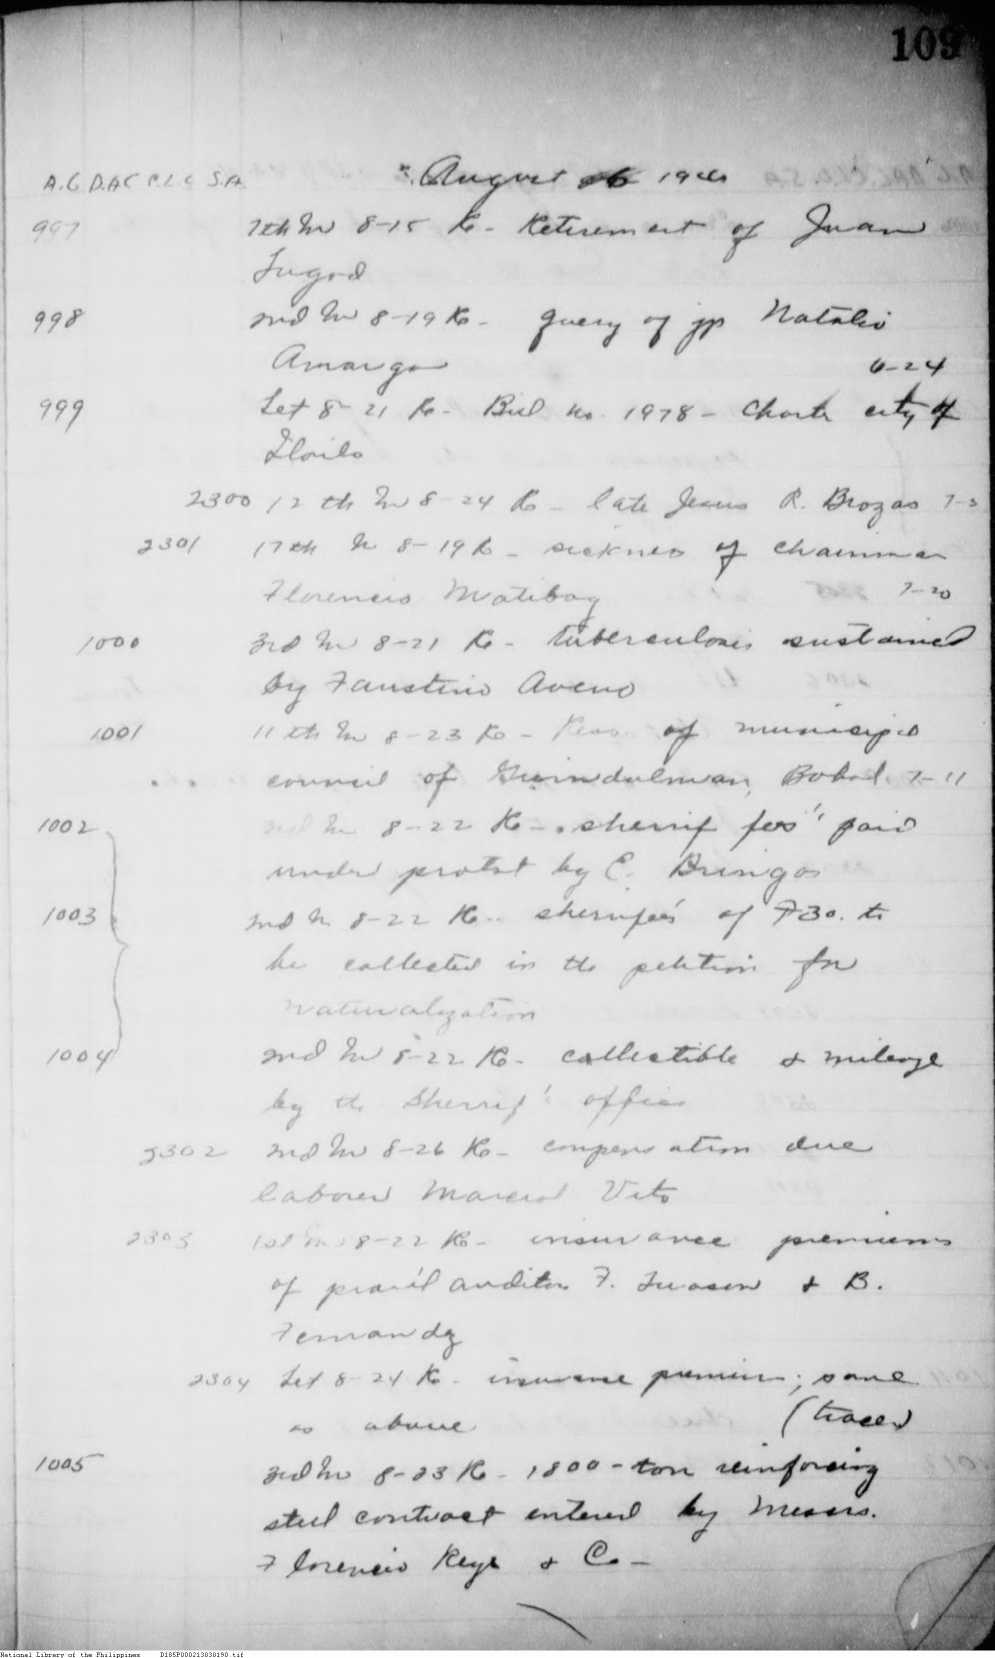 109
A.G D.AC C.L.C S.A. August 26 19
997 7th In 8-15 Re- Retirement of Juan
Lugod
998 2nd In 8-19 Re- query of jp Natalio
Amarga 6-24
999 Let 8-21 Re- Bill no. 1978- Charter city of
Iloilo
2300 12th In 8-24 Re- late Jesus R. Brozas 7-3
2301 17th In 8-19 Re- sickness of chainman
Florencio Matibag 7-20
1000 3rd In 8-21 Re- tuberculosis sustained
by Faustino Aveno
1001 11th In 8-23 Re- Reso. of municipal
council of Guindulman, Bohol. 7-11
1002 2nd In 8-22 Re- sherrif fees' paid
under protest by E. Bringas
1003 2nd In 8-22 Re- of ₱30. to
be collected in the petition for
naturalization
1004 2nd In 8-22 Re- collectible & mileage
by the Sherrif's office
2302 2nd In 8-26 Re- compensation due
laborer Marcial Vito
2303 1st In 8-22 Re- insurance premiums
of prov'l auditors F. Tuason & B.
Fernandez
2304 Let 8-24 Re- insurance premium; same
as above (traced)
1005 3rd In 8-23 Re- 1800-ton reinforcing
steel contract entered by Messrs.
Florencio Reyes & Co-
National Library of the Philippines D185P000213838190.tif